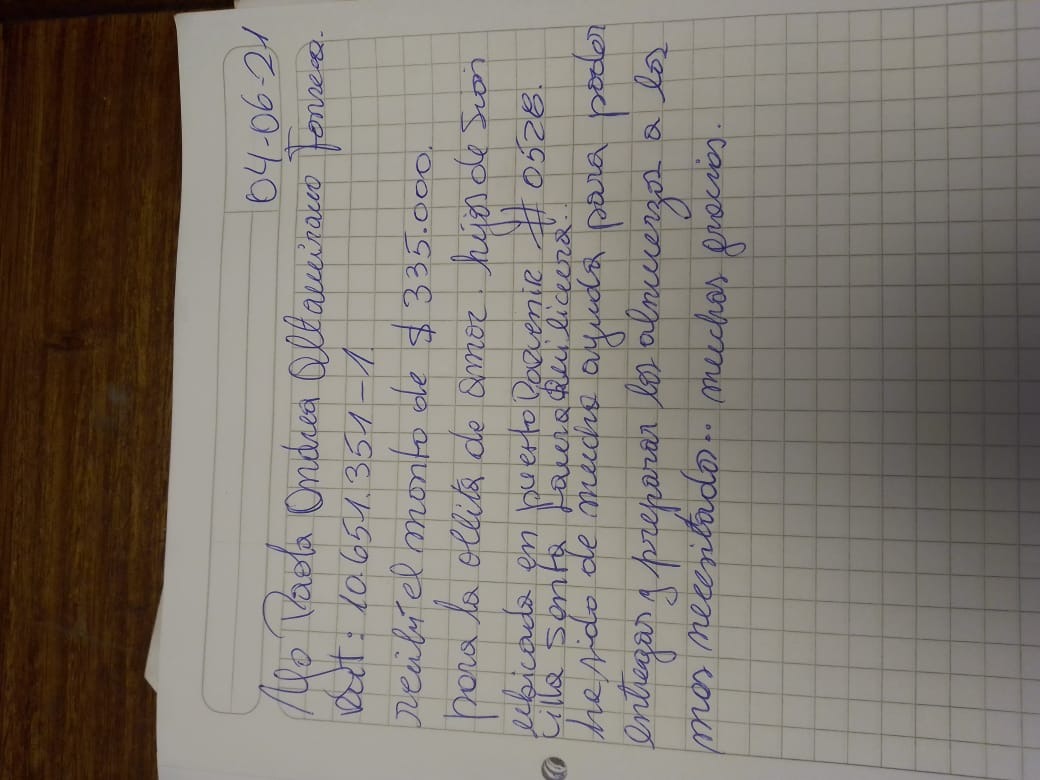 04-06-21
Yo Paola Andrea Altamirano Fonseca.
Rut: 10.651.351-1.
recibí el monto de $ 335.000.
para la ollita de amor. hijos de Sion
ubicada en puerto Porvenir # 0528.
Villa Santa Laura Quilicura..
ha sido de mucha ayuda para poder
entregar y preparar los almuerzos a los
mas necesitados.. muchas gracias.